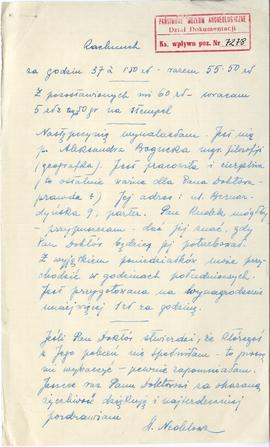 PAŃSTWOWE MUZEUM ARCHEOLOGICZNE
Dział Dokumentacji
Ks. wpływu poz. Nr 7278
Rachunek
za godzin 37 à 1.50 zł - razem 55.50 zł
Z pozostawionych mi 60 zł - zwracam
5 na stempel
Następczynię wynalazłam. Jest nią
p. Aleksandra mgr. filozofii
(geografka). Jest pracowita i cierpliwa
(to ostatnie ważne dla Pana Doktora -
prawda?) Jej adres: ul. Bernar-
dyńska 9, parter. Pan Rudek mógłby
- przypuszczam - dać jej znać, gdy
Pan Doktór będzie jej potrzebował.
Z wyjątkiem poniedziałków może przy-
chodzić w godzinach południowych.
Jest przygotowana na wynagrodzenie
mniejsze 1 zł za godzinę.
Jeśli Pan Doktór stwierdzi, że któregoś
z Jego poleceń nie spełniłam - to proszę
mi wybaczyć - pewnie zapomniałam.
Jeszcze raz Panu Doktorowi za okazaną
życzliwość dziękuję i najserdeczniej
pozdrawiam